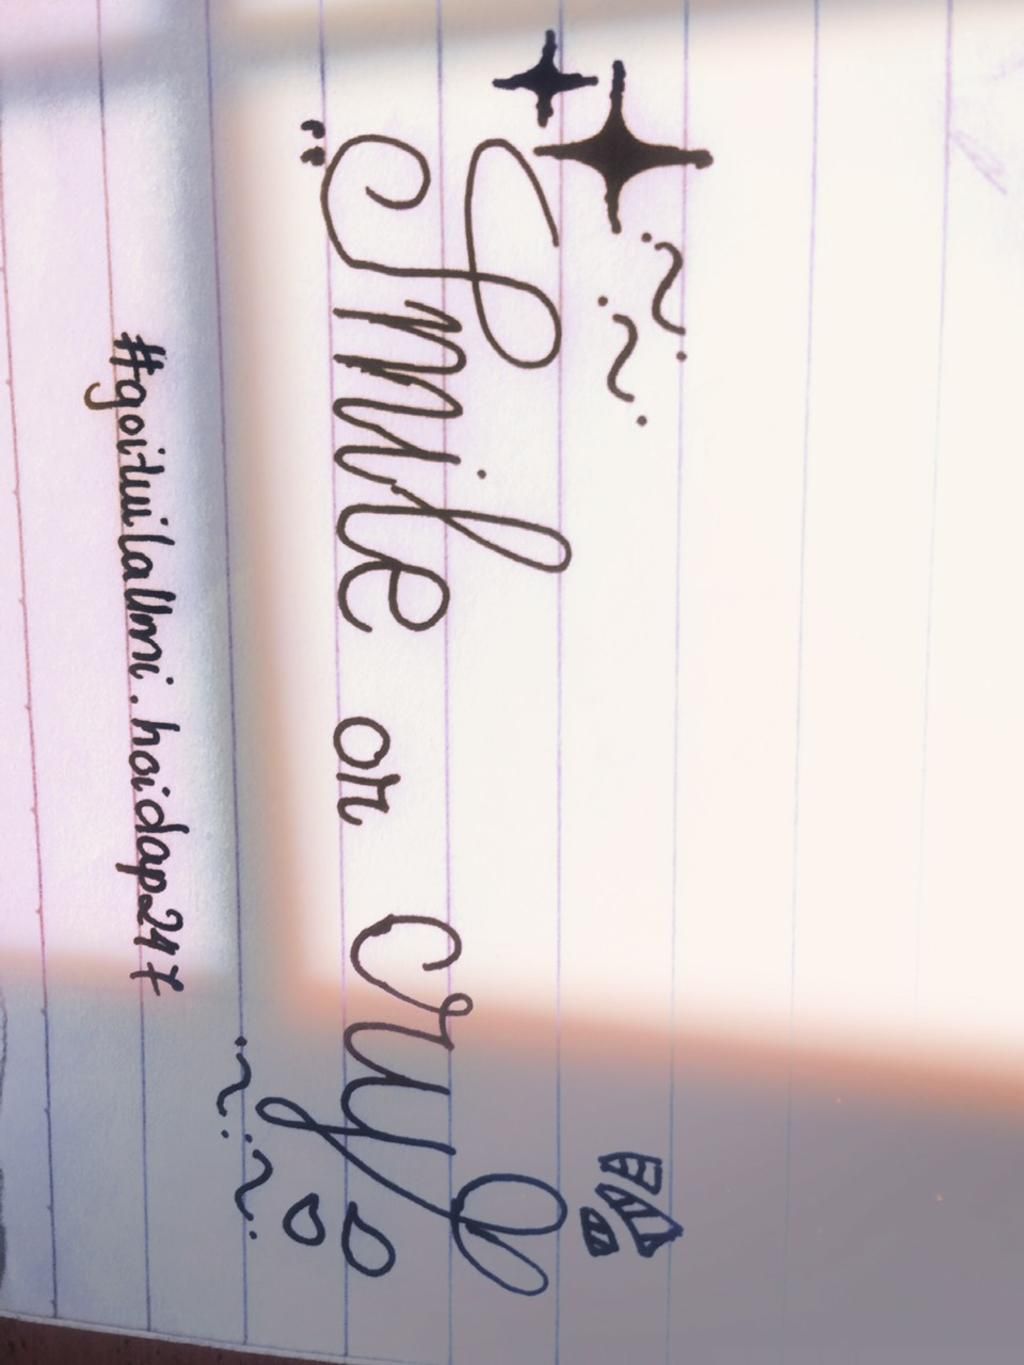 "Smile or cry
#goituilallmi.hoidap247